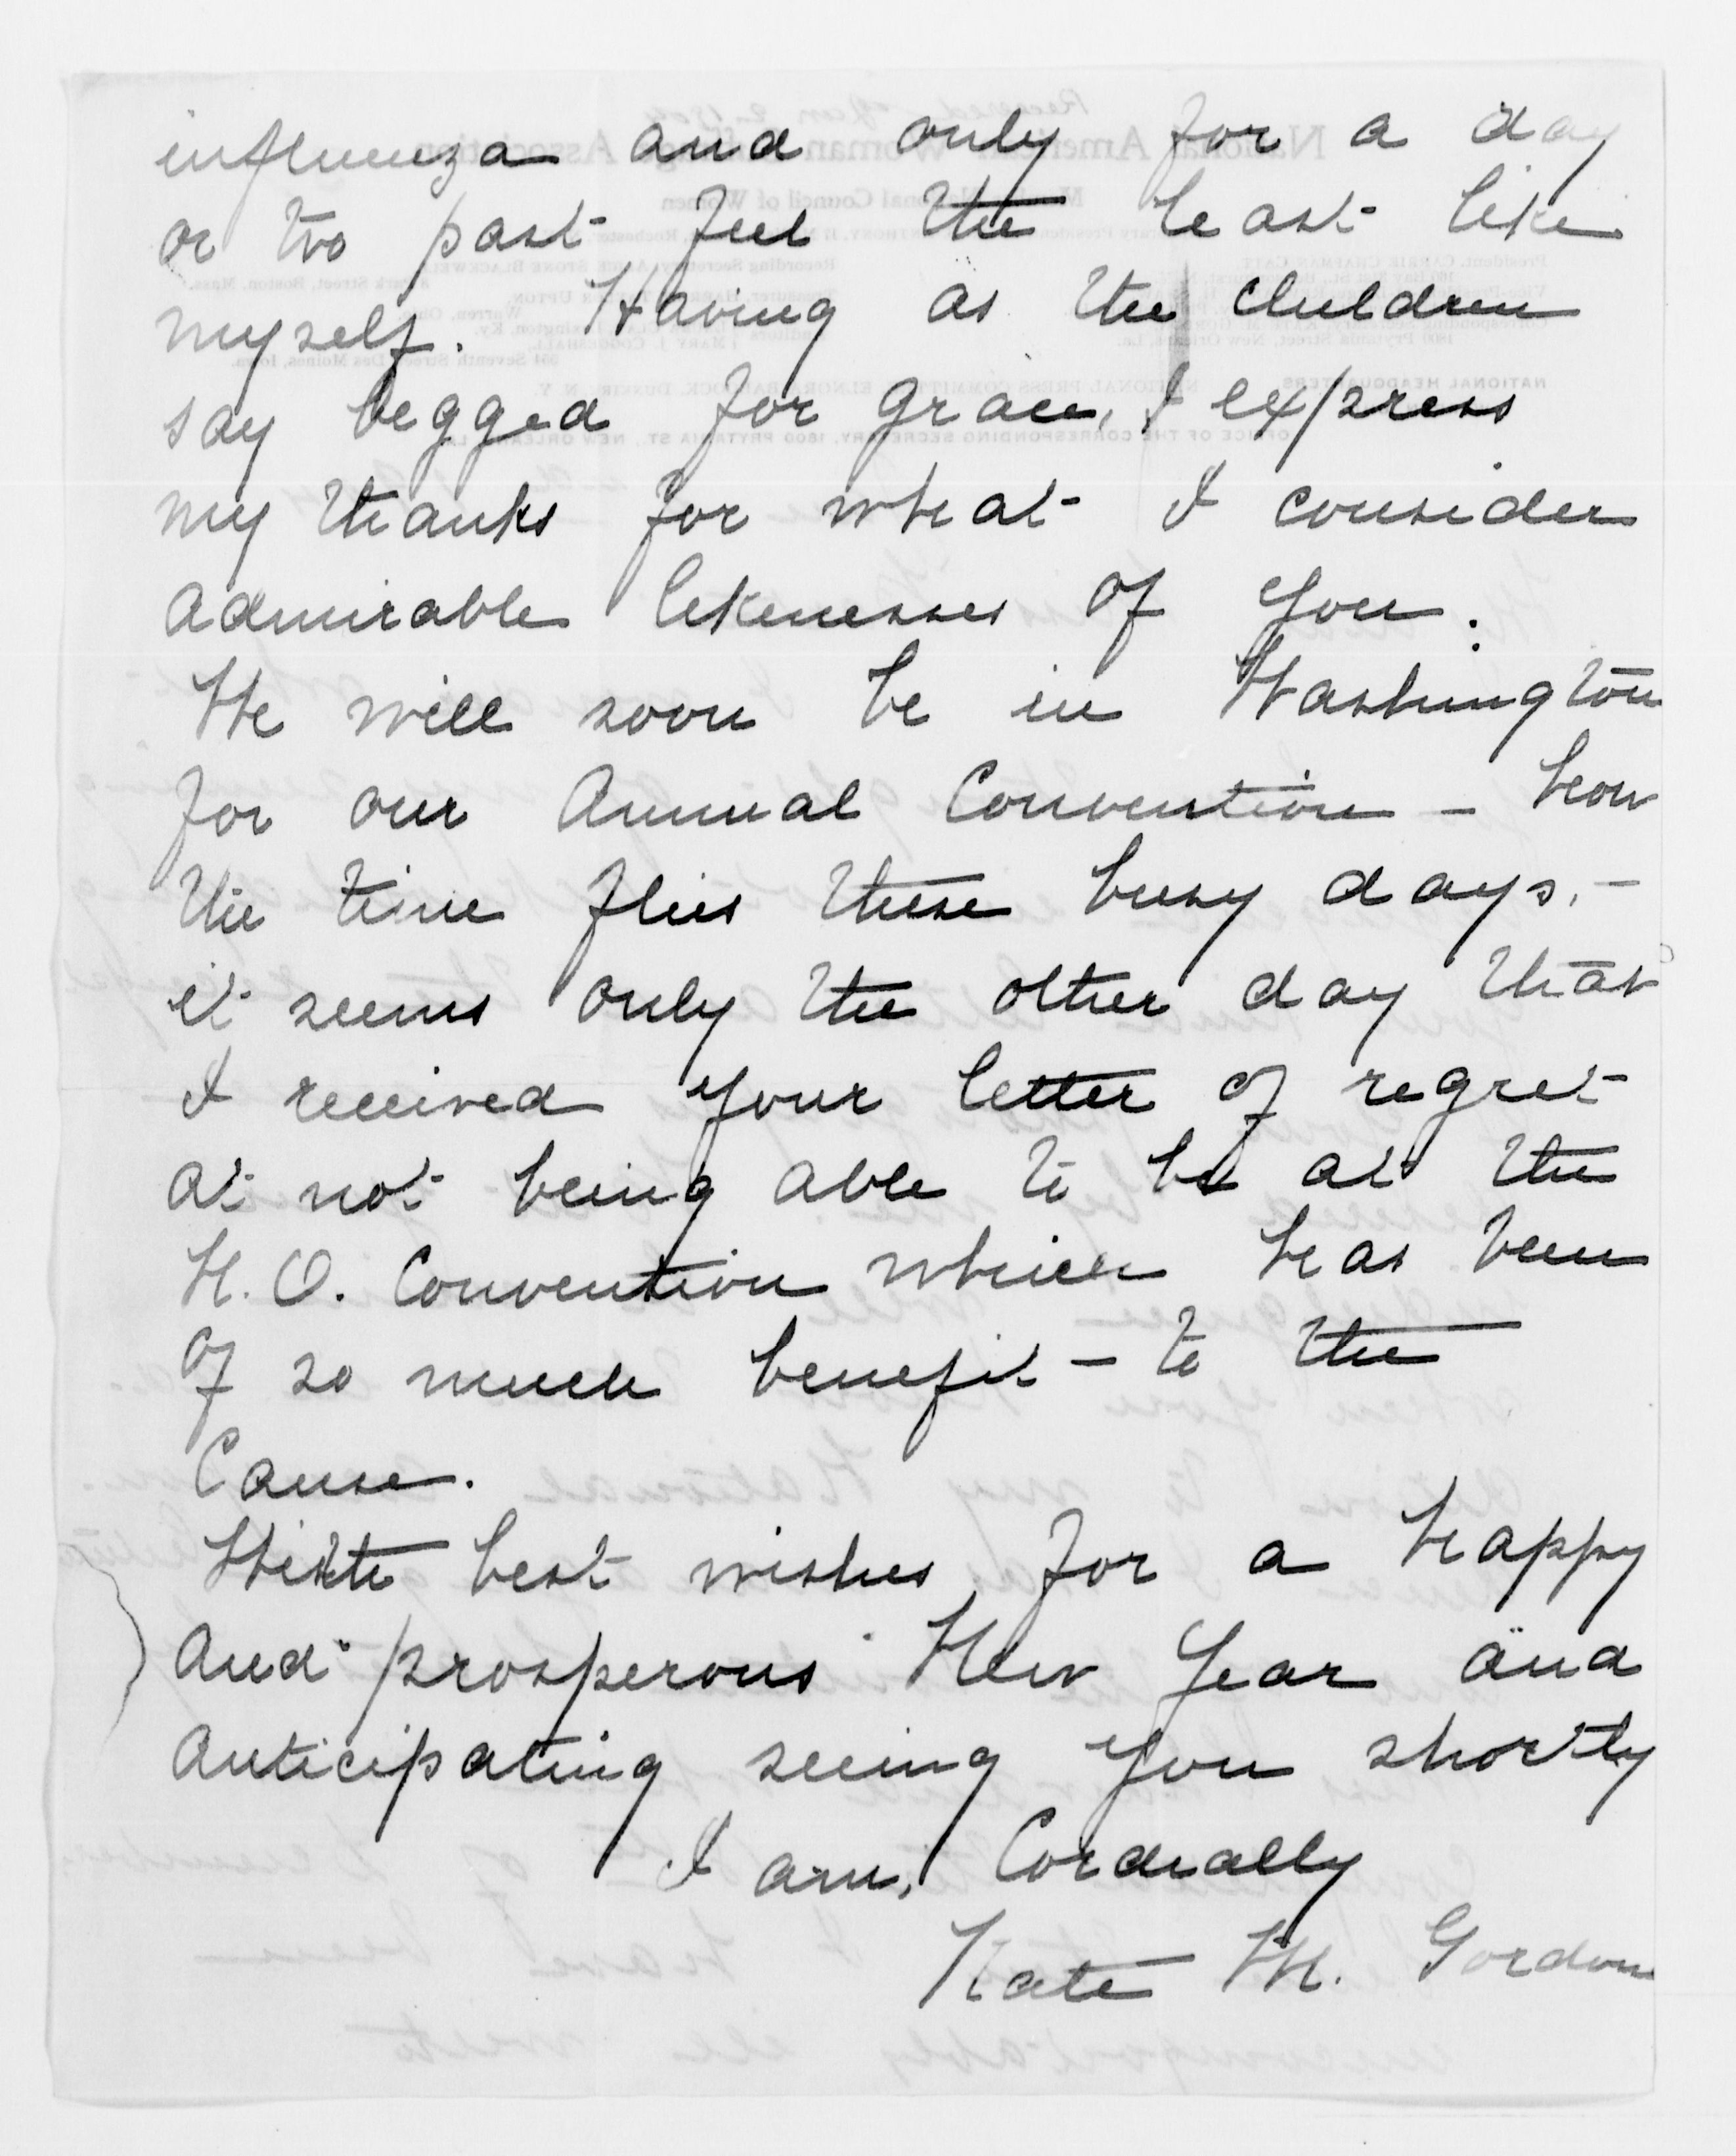 influenza and only for a day
or two past feel the least like
myself. Having as the children
say begged for grace, I express
my thanks for what I consider
admirable likenesses of you.
We will soon be in Washington
for our Annual Convention - how
the time flies these busy days. -
it seems only the other day that
I received your letter of regret
at not being able to be at the
N.O. Convention which has been
of so much benefit - to the
Cause.
With best wishes for a happy
and prosperous New Year and
anticipating seeing you shortly
I am, Cordially
Kate M. Gordon